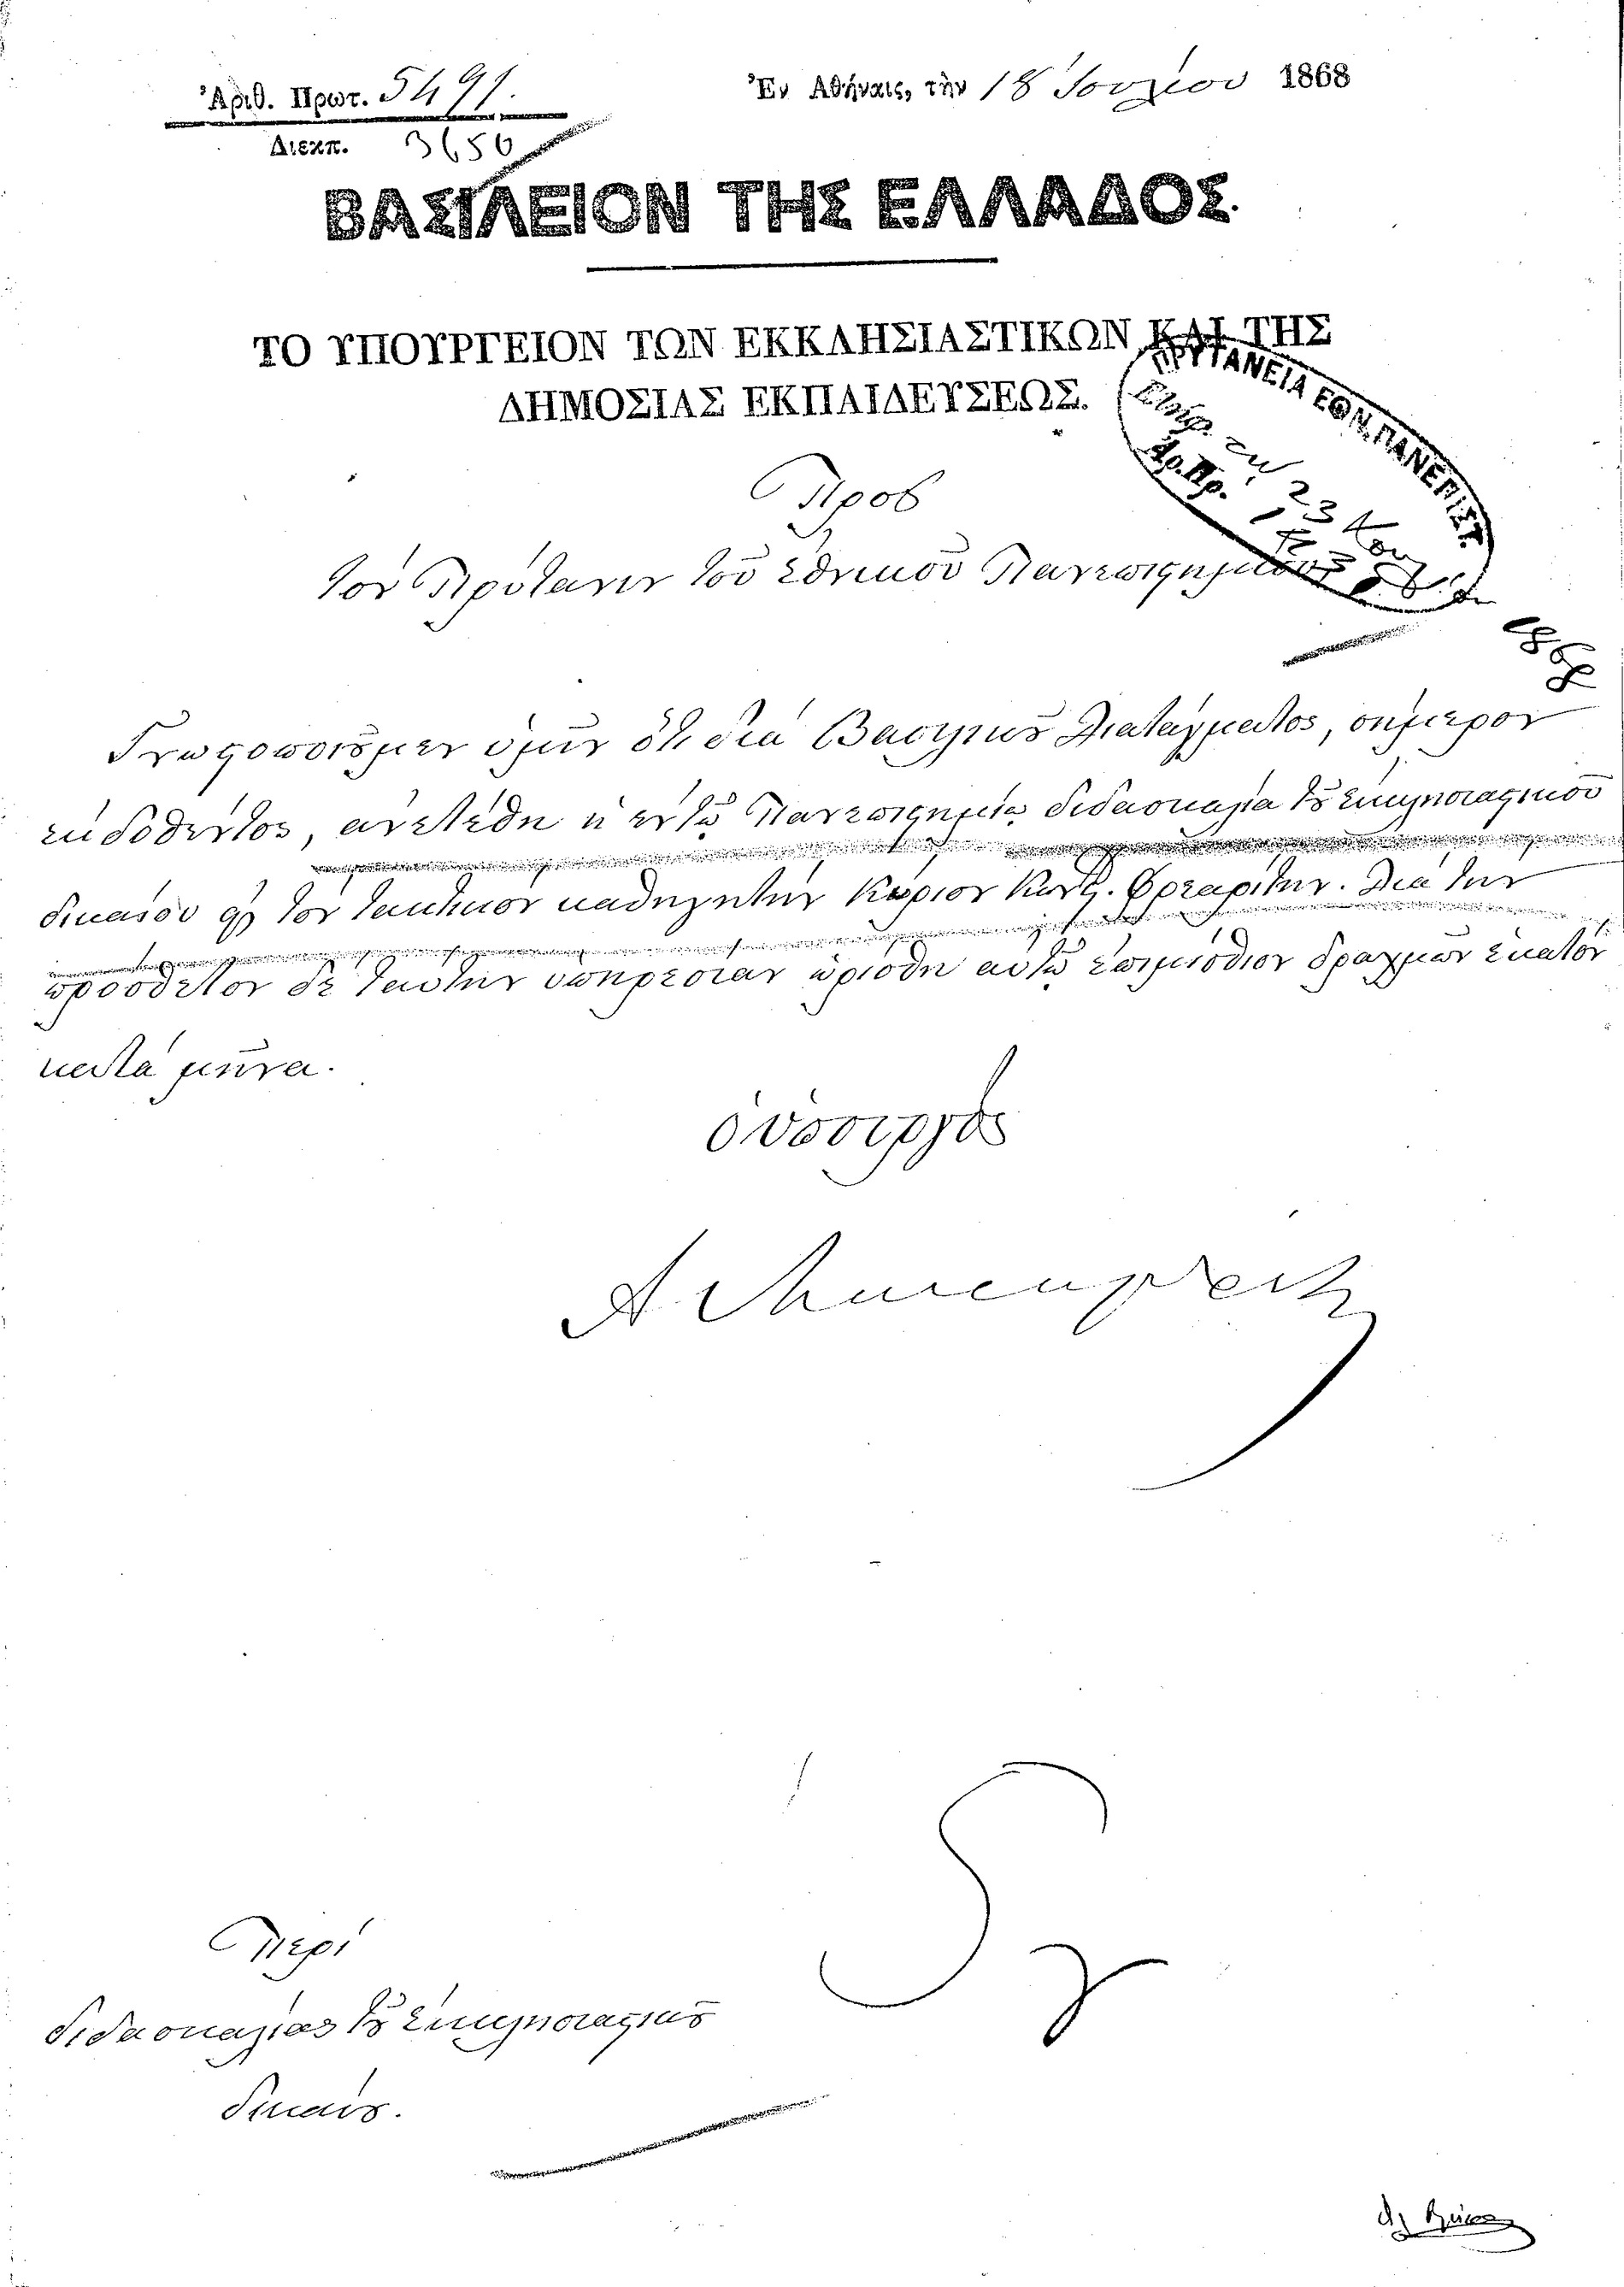 Ἀριθ. Πρωτ. 5491.
Διεκπ. 3650
Ἐν Ἀθήναις, τὴν 18 Ἰουνίου 1868
ΒΑΣΙΛΕΙΟΝ ΤΗΣ ΕΛΛΑΔΟΣ.
ΤΟ ΥΠΟΥΡΓΕΙΟΝ ΤΩΝ ΕΚΚΛΗΣΙΑΣΤΙΚΩΝ ΚΑΙ ΤΗΣ
ΔΗΜΟΣΙΑΣ ΕΚΠΑΙΔΕΥΣΕΩΣ.
ΠΡΥΤΑΝΕΙΑ ΕΘΝ. ΠΑΝΕΠΙΣΤ.
Ἀρ. Πρ.
Πρὸς
τὸν Πρύτανιν τοῦ Ἐθνικοῦ Πανεπιστημίου
Γνωστοποιοῦμεν ὑμῖν ὅτι διὰ Βασιλικοῦ Διατάγματος, σήμερον
ἐκδοθέντος, ἀνετέθη ἡ ἐν τῷ Πανεπιστημίῳ διδασκαλία τοῦ Ἐκκλησιαστικοῦ
δικαίου εἰς τὸν τακτικὸν καθηγητὴν Κύριον Κωνστ. Φρεαρίτην. Διὰ τὴν
πρόσθετον δὲ ταύτην ὑπηρεσίαν ὡρίσθη αὐτῷ ἐπιμίσθιον δραχμῶν ἑκατὸν
κατὰ μῆνα.
ὁ Ὑπουργὸς
Περὶ
διδασκαλίας τοῦ Ἐκκλησιαστικοῦ
δικαίου.